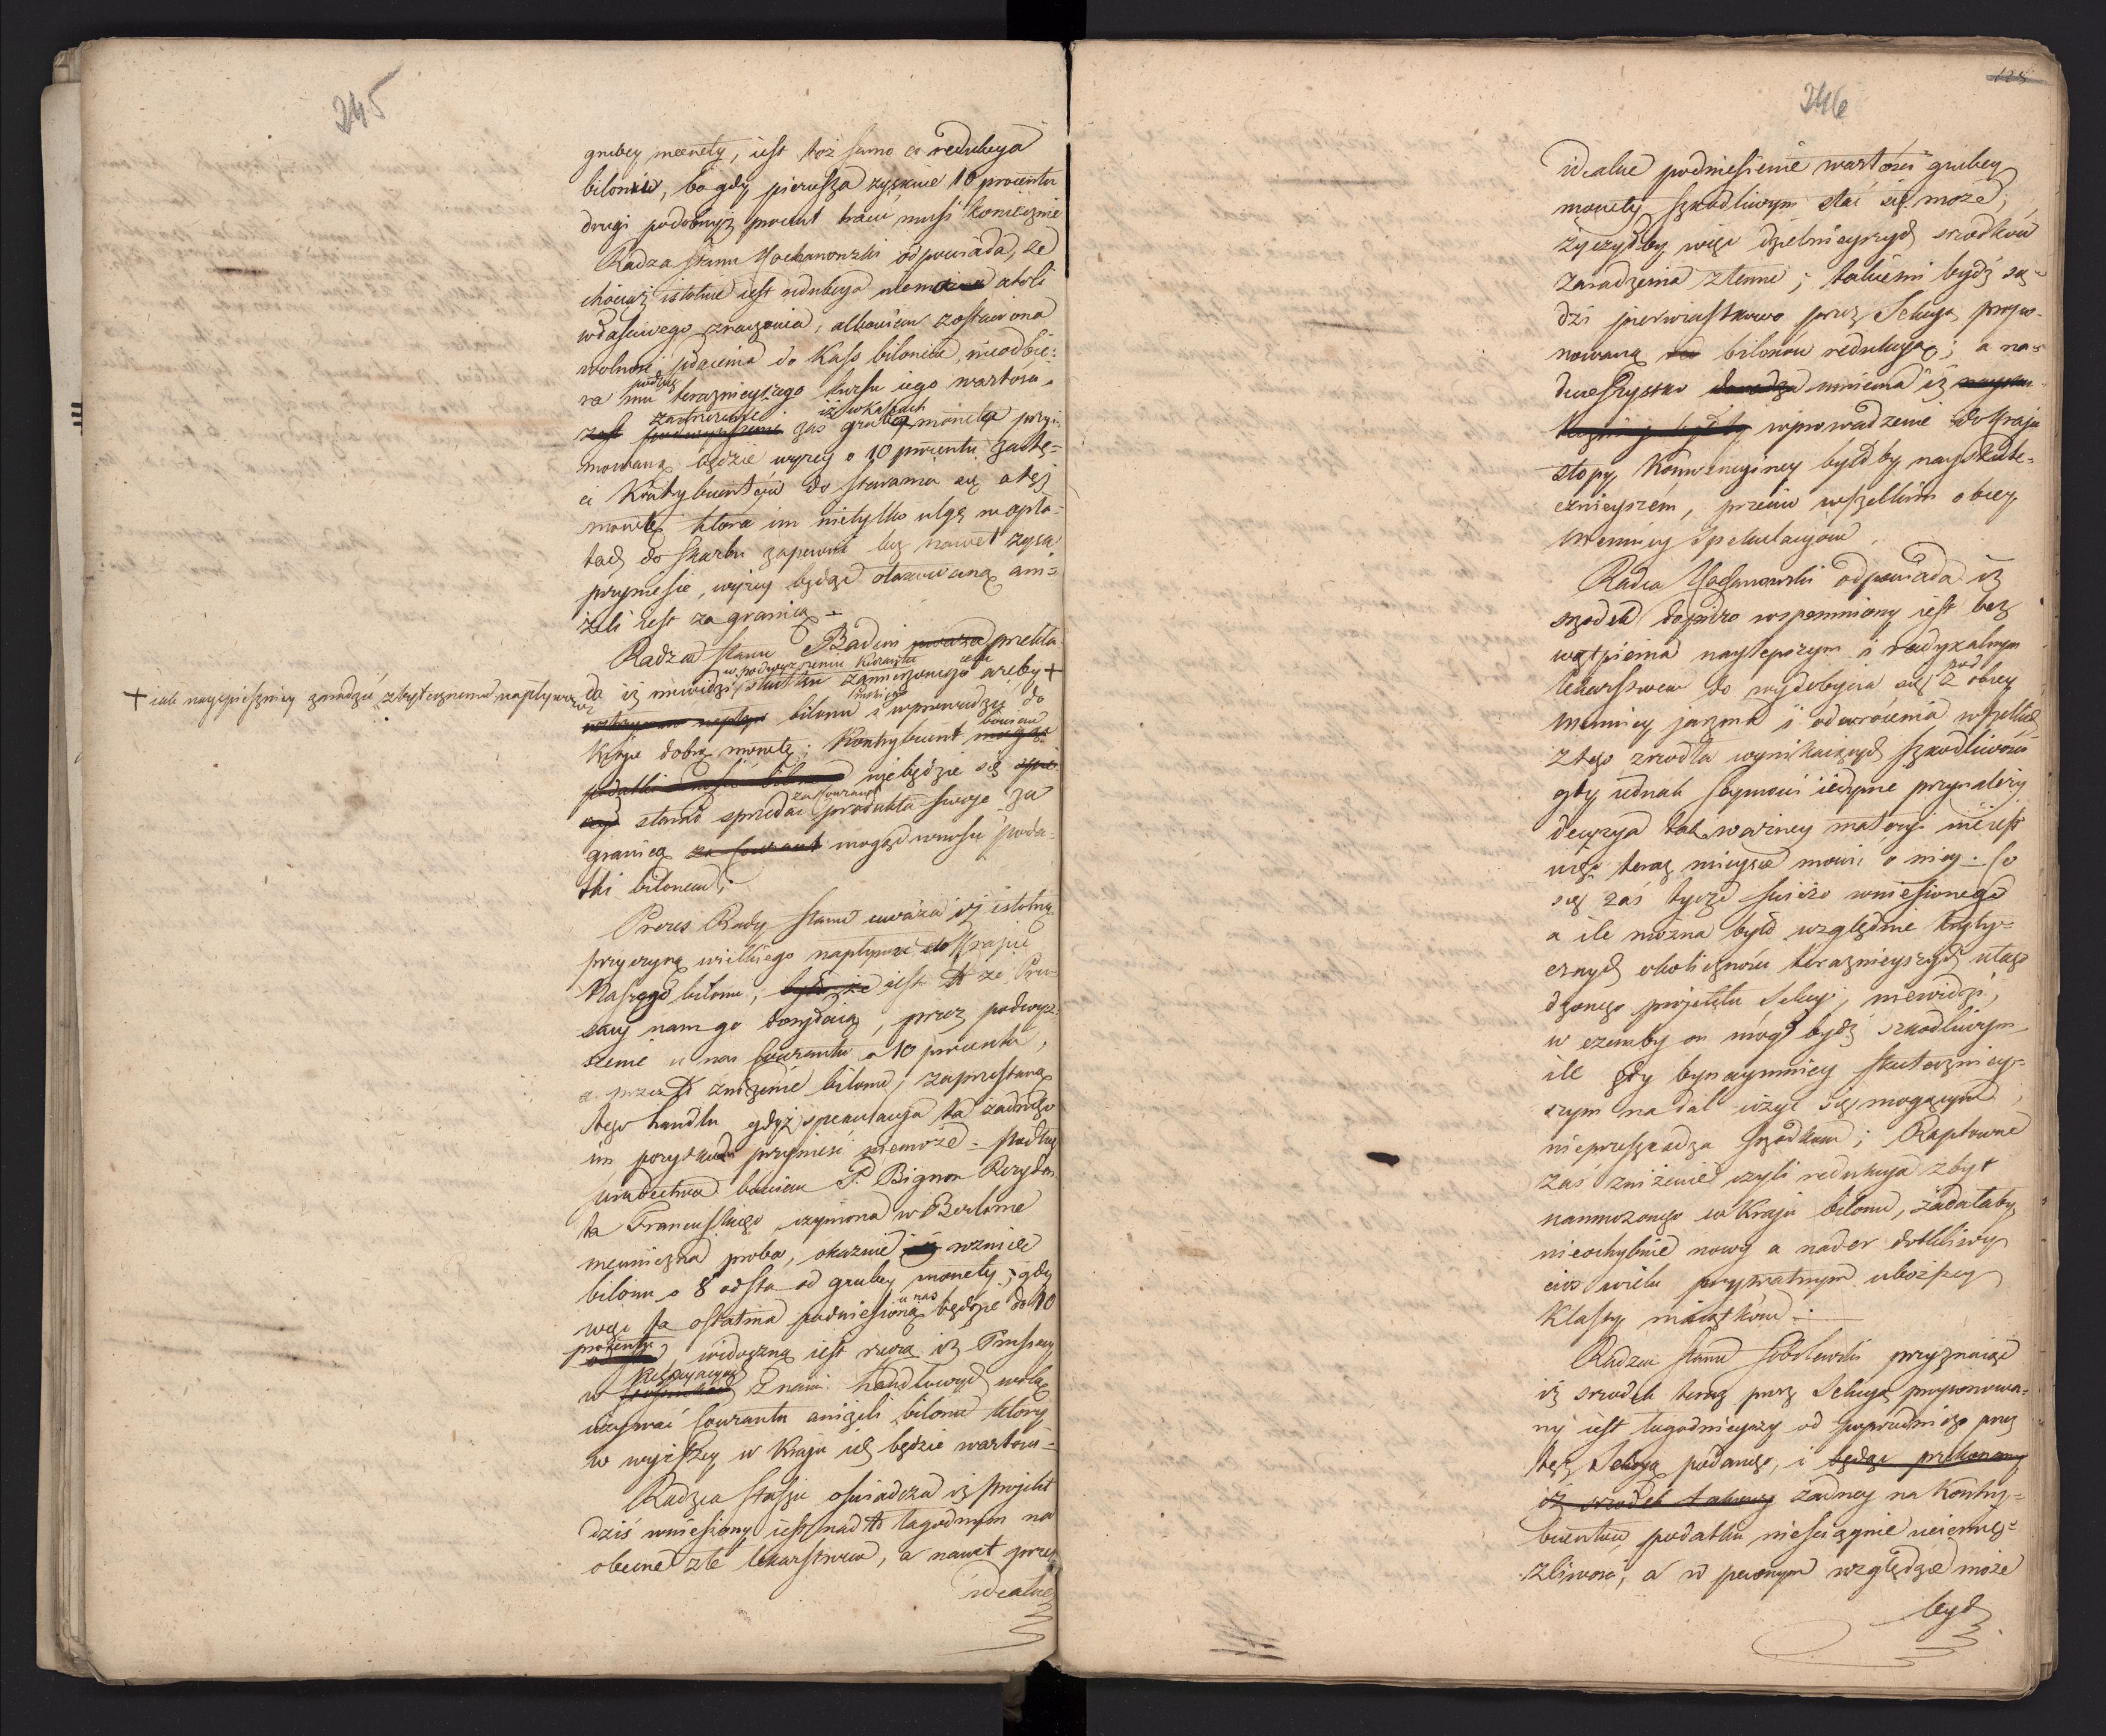 245
grubey monety, iest toż samo co redukcya
bilonu, bo gdy pierwsza zyskuie 10 procentu
drugi podobnyż procent tracić musi koniecznie
Radzca Stanu Kochanowski odpowiada, że
chociaż istotnie iest redukcya niema atoli
właściwego znaczenia, albowiem zostawiona
wolność płacenia do Kass bilonem, nieodbie-
ra mu podług terazniejszego kursu iego wartości,
zaś grubą moneta przyi-
mowaną będzie wyżey o 10 procentu zachę-
ci Kontrybuentów do starania się o tęż
monetę która im nietylko ulgę w opła-
tach do Skarbu zapewni lecz nawet zysk
przyniesie, wyżey będąc otaxowaną ani-
żeli iest za granicą
Radzca Stanu Badeni przekła-
da iż niewidzi w podwyższeniu Kurantu skutku zamierzonego celu ażeby +
+ iak nayspieszniey zaradzić zbytecznemu napływowi
bilonu i wprowadzić do
Kraju dobrą monetę; Kontrybuent bowiem
podatki nie będzie się
starał sprzedać za courant produkta swoje za
granicą za Courant mogąc wnosić poda-
tki bilonem.
Prezes Rady Stanu uważa iż istotną
przyczyną wielkiego napływu do Kraju
Naszego bilonu, było, że iest to że Pru-
sacy nam go dosyłaią, przez podwyż-
szenie u nas Courantu o 10 procentu,
a przez to zniżenie bilonu, zaprzestaną
tego handlu gdyż spekulacya ta żadnego
im pozytku przynieść niemoże. Podług
świadectwa bowiem P. Bignon Rezyden-
ta Francuskiego czyniona w Berlinie
mennicza proba, okazuie rżnicę
bilonu o 8 odsta od grubey monety; gdy
więc ta ostatnia podniesioną u nas będzie do 10
procentu, widoczną iest rzeczą iż Prussacy
w z nami handlowych wolą
używać Courantu aniżeli bilonu który
w wyższey w Kraju ich będzie wartości
Radzca Staszic oświadcza iż projekt
dziś wniesiony iest nadto łagodnym na
obecne złe lekarstwem, a nawet przez
idealne
125
246
idealne podniesienie wartości grubey
monety szkodliwym stać się może,
życzyłby więc dzielnieyszych srodków
zaradzenia złemu; takiemi bydź są-
dzi pierwiastkowo przez Sekcyą propo-
nowaną bilonu redukcyą; a na-
dewszystko mniema iż
wprowadzenie do Kraju
stopy Konwencyiney byłoby nayskute-
cznieyszém, przeciw wszelkim obcey
mennicy spekulacyom
Radca Kochanowski odpowiada iż
srzodek dopiero wspomniony iest bez
wątpienia naylepszym i radykalnym
lekarstwem do wydobycia się z pod obcey
mennicy jarzma i odwrócenia wszelkich
z tego zrodła wynikaiących szkodliwości
gdy iednak Seymowi iedynie przynależy
decyzya tak ważney materyi nie iest
więc teraz mieysce mowić o niey. Co
się zaś tycze świeżo wniesionego
a ile można było względnie kryty-
cznych okoliczności terazniejszych ułago-
dzonego projektu Sekcyi, niewidzi,
w czemby on mógł bydź szkodliwym
ile gdy bynaymniey skuteczniey-
szym na dal użyć się mogącym,
nieprzeszkadza srzodkom; Raptowne
zaś zniżenie czyli redukcya zbyt
namnożonego w Kraju bilonu, zadałaby
nieochybnie nowy a nader dotkliwy
cios wielu prywatnym uboższey
Klassy maiątkom.
Radzca Stanu Sobolewski przyznaiąc
iż srzodek teraz przez Sekcyą proponowa-
ny iest łagodnieyszy od poprzedniego przez
tęż Sekcyą podanego, i będąc przekonany
iż srzodek takowy żadney na Kontry-
buentów podatku nieściągnie uciemię-
żliwości, a w pewnym względzie może
bydź